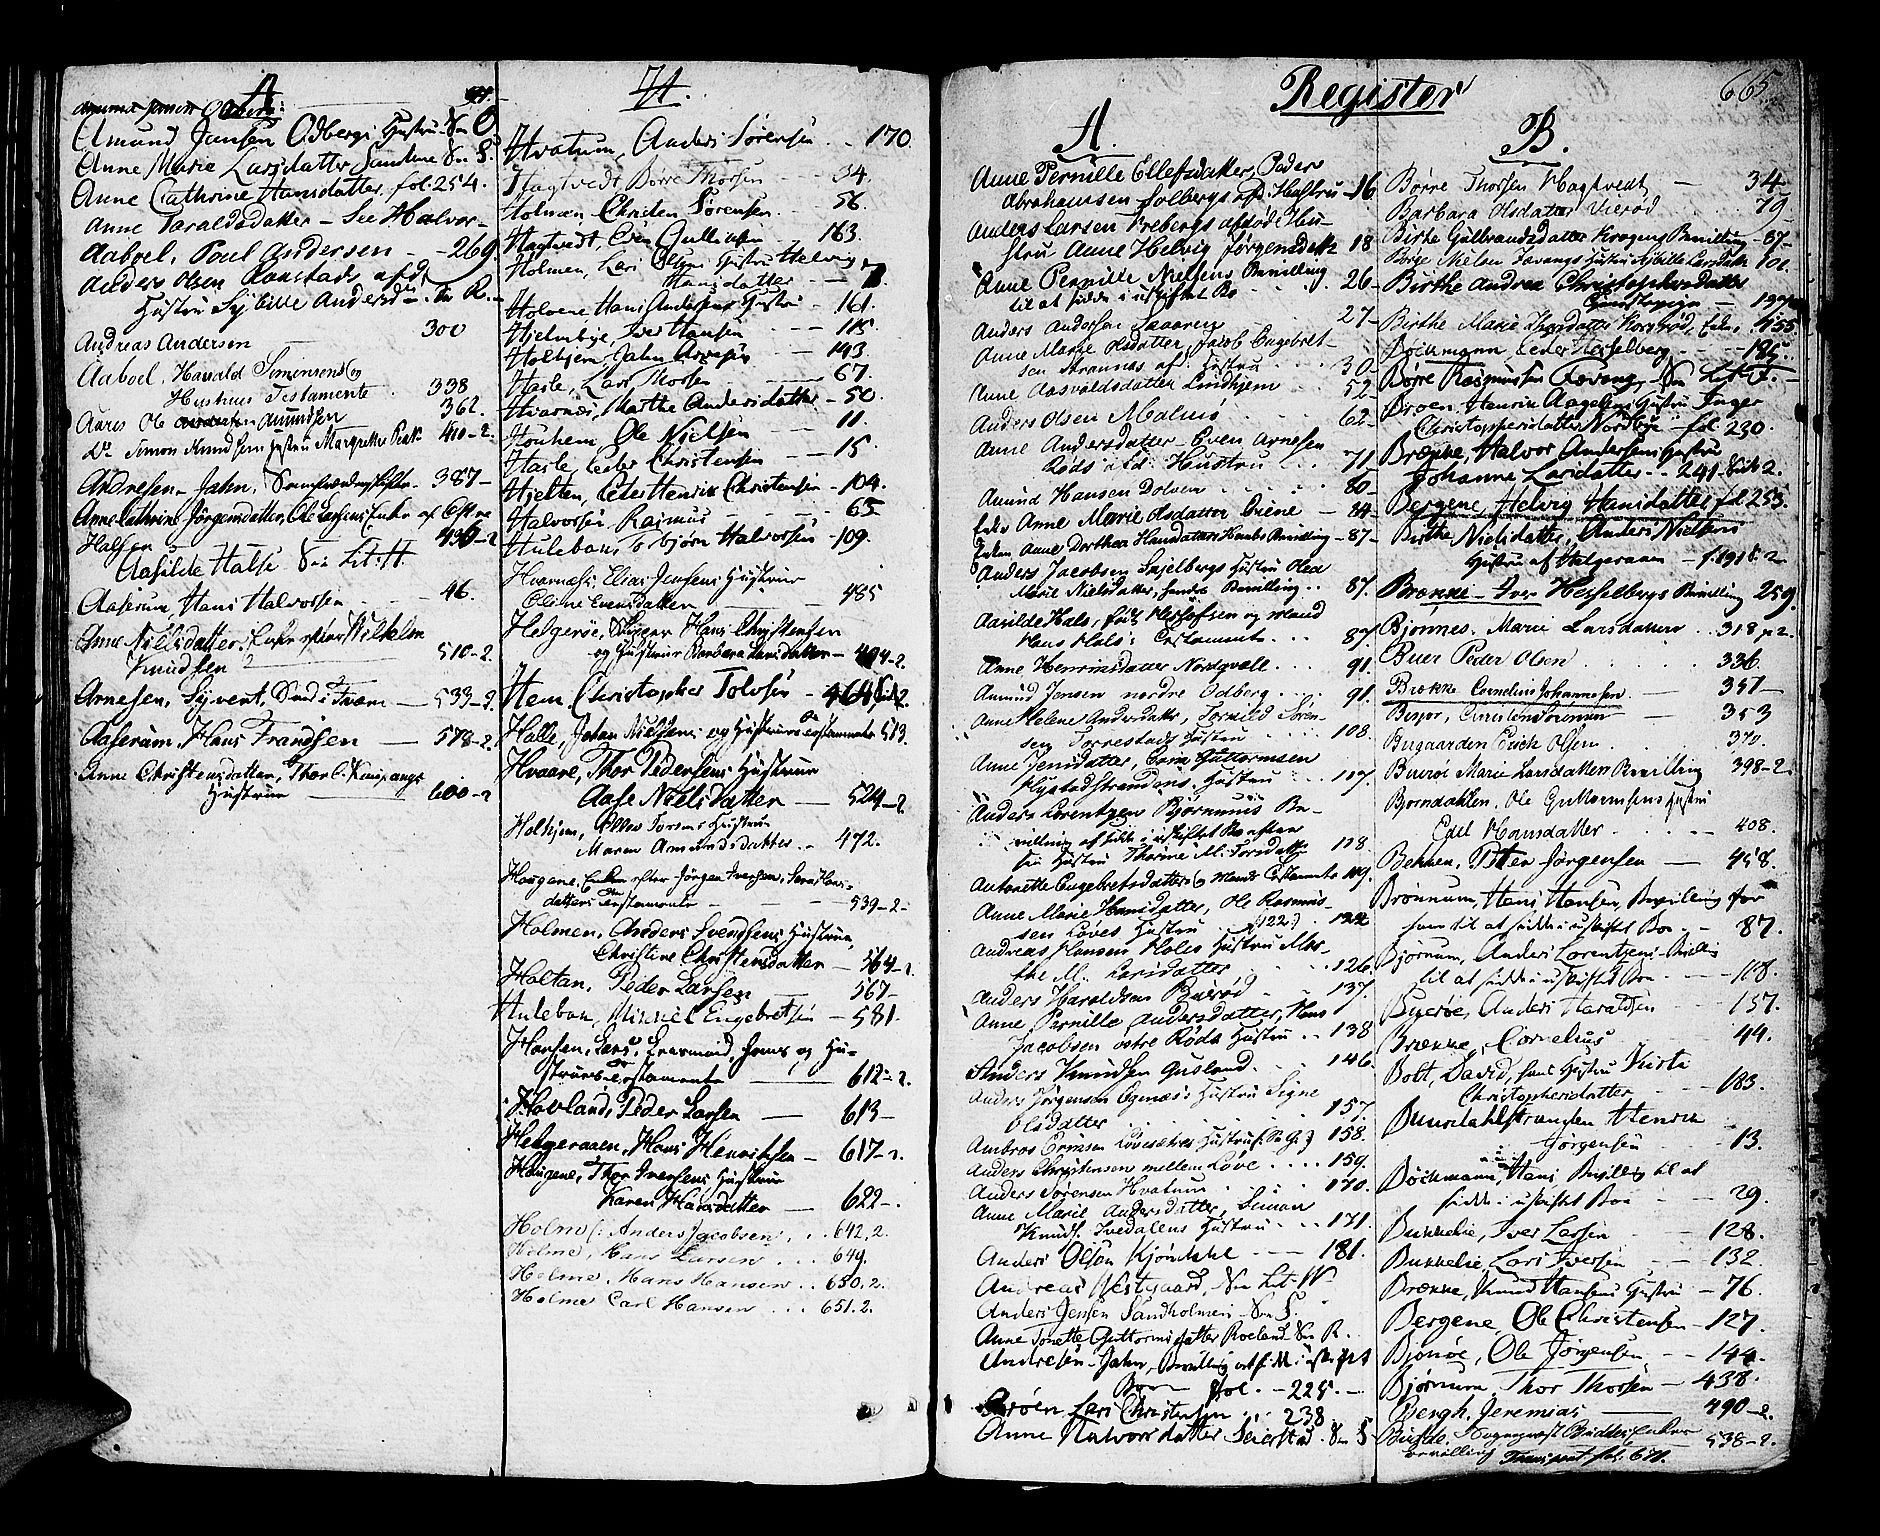 A
Amund Jansen Odbergs Hustru See O
Anne Marie Larsdatter Sandene See S.
Anne Cathrine Hansdatter, fol. 254.
Anne Taraldsdatter - See Halvor-
Aaboel, Poul Andersen - 269.
Anders Olsen
Hustru Andersd. See R.
300
Andreas Andersen
Aaboel, Harald Simonsens og
Hustrues Testamente . 338
Aares Ole Amundsen 362.
Do Simon Knudsens Hustru Margrethe 410-2.
Andresen, Jahn, 387-
Anne Cathrine Jørgensdatter, Ole Larsens Enke af Østre
Halsen 430-2
Aasilde Halse See Lit: H.
Aaserum, Hans Halvorsen - 46.
Anne Nielsdatter, Enke efter Wilhelm
Knudsen 510-2.
Arnesen, Syvert, 533-2
Aaserum, Hans Frandsen - 578-2
Anne Christensdatter, Thor Kaupangs
Hustrue 600-2
H.
Hvatum, Anders Sørensen . . 170.
Hagtvedt, Børre Thorsen - 34.
Holman Christen Sørensen - 56
Hagtvedt, Even Gulliksen - 163
Holmen, Lars Olsens Hustru Helvig
Hansdatter - - 7.
Holvene Hans Andersens Hustru - 161.
Hjelmbye, Iver Hansen - 115.
Holhjem Jahn - 143.
Hasle, Lars Thorsen 67.
Hvarnes, Marthe Andersdatter - 50.
Houhem, Ole Nielsen - 11.
Hasle, Peder Christensen - 15.
Hjelten, Peter Henrik Christensen - 104.
Halvorsen Rasmus - 65
Hulebak, Torbjørn Halvorsen - 109.
Hvarnæss Elias Jensens Hustrue
Oline Evensdatter 485
Helgerøe, Hans Christensen
og Hustrue Barbara Larsdatter - 494-2.
Hem Christopher Tolvsen - 464
Halle, Johan Nielsens og Hustrues Testamente 513.
Hvaare, Thor Pedersens Hustrue
Aase Nielsdatter - 524-2
Holhjem, Hustrue
Maren Amundsdatter - 472.
Haugene, Enken efter Jørgen Iversen, Sara Hans-
datters Testamente - - - 539-2-
Holmen, Anders Svendsens Hustrue,
Christine Christensdatter - 564-2.
Holtan, Peder Larsen - 567-
Hulebak, Mikkel Engebretsen - 581.
Hansen, Lars, hans og Hu-
strues Testamente - 612-2.
Hovland, Peder Larsen - 613-
Helgeraaen, Hans Henrichsen - 617-2.
Haugene, Thor Iversens Hustrue
Karen Hansdatter - 622-.
Holme (: Anders Jacobsen, . . 642,2.
Holme, Hans Larsen . . . 649.
Holme, Hans Hansen . . 650.2.
Holme Carl Hansen . . . 651.2.
Register
665.
A.
Anne Pernille Ellefsdatter, Peder
Abrahamsen Solbergs afd: Hustru - 16
Anders Larsen Vrebergs afdøde Hu-
stru Anne Helvig Jørgensdattr 18
Anne Pernille Nielsens Bevilling
til at sidde i uskiftet Bo . . . 26-
Anders Andersen . . 27-
Anne Marie Olsdatter, Jacob Engebret-
sen af: Hustru . . 30-
Anne Aasvaldsdatter Lindhjem . . 52-
Anders Olsen Malmø . . . 62-
Anne Andersdatter - Even Arnesen
Røds afd: Hustru . . . 71
Amund Hansen Dolven . . . . . 80-
Enke Anne Marie Olsdatter - 84-
Enken Anne Dorthea Hansdatter Bevilling - 87-
Anders Jacobsen Skjelbergs Hustru
Marie Nielsdatter, Bevilling . . 87.
Aasilde Hals, og Mand
Hans Hals's Testamente . . . 87.
Anne Henriksdatter Nordqvelle . . . 91.
Amund Jensen nordre Odberg . . . . 91.
Anne Helene Andersdatter, Tornild Søren-
sen Torrestads Hustru . . . . . 108.
Anne Jensdatter, Guttormsen
Hustru . . . . 117.
Anders Lorentzen Bjørnums Be-
villing at sidde i uskiftet Bo efter
sin Hustru Thorine M. Torsdattr 118.
Antonette Engebretsdatters og Mands Testamente 119.
Anne Marie Hansdatter, Ole Rasmus-
sen Løves Hustru (122:) . 122
Andreas Hansen Holes Hustru Mar-
the M. Larsdatter . . . . 126.
Anders Haraldsen Buerød . . 137.
Anne Pernille Andersdatter, Hans
Jacobsen østre Røds Hustru . . 138
Anders Knudsen Gusland . . . 146.
Anders Jørgensen Hustru Signe
Olsdatter . . . . . 157.
Ambros Hustru 158.
Anders Christensens mellem Løve . . . . 159.
Anders Sørensen Hvatum . . . . . 170.
Anne Marie Andersdatter, Simon
Knuds. Ivedalens Hustru . . . 171.
Anders Olsen Kjøndahl - - - 181.
Andreas Vestgaard, See Lit. W
Anders Jensen Sandholmen - See S.
Anne Tonette Guttormsdatter Roeland See R.
Andresen - Jahn, Bevilling at s: M: i uskiftet
Boe fol. - 225. -
Lars Christensen . . . 238
Anne Halvorsdatter Seierstad . See S
B.
Børre Thorsen Hagtvedt - 34-
Barbara Olsdatter Vierød . 79-
Birthe Gulbrandsdatter Krogens Bevilling - 87-
Børge Nielsen Favangs Hustru Sybille Larsdatter 101.
Birthe Andrea Christophersdatter
197
Birthe Marie Thorsdatter 455
Bøckmann, Peder Hesselberg - 185.
Børre Rasmussen Favang, See Lit: F. -
Broen, Henrik Aagesens Hustru Inger
Christophersdatter Nordbye - fol 230.
Brekke, Halvor Andersens Hustru
Johanne Larsdatter - 241. Side 2.
Bergene, Helvig Hansdatter fol 255.
Birthe Nielsdatter, Anders Nielsens
Hustru af Helgeraaen - f. 191 S. 2
Brekke - Iver Hesselbergs Bevilling 259.
Bjønnes, Marie Larsdatter . . 318 p 2.
Buer Peder Olsen . . . . . 336.
Brekke Cornelius Johannesen - 351-
353
Bugaarden Erich Olsen . . 370.
Buerøe Marie Larsdatters Bevilling 398-2.
Bjørndahlen, Ole Guttormsens Hustru
Edel Hansdatter . . 408.
Bekken, Peter Jørgensen - 458.
Brønnum, Hans Hansen, Bevilling for
ham til at sidde i uskiftet Boe - 87.
Bjørnum, Anders Lorentzens Bevilling
til at sidde i uskiftet Boe - 118.
Buerøe, Anders Haraldsen - 137.
Brekke, Cornelius - 44.
Bolt, David, hans Hustru Kirsti
Christophersdatter - 183.
Henrik
Jørgensen - 13.
Bøckmann, Hans Bevilling til at
sidde i uskiftet Boe - 29.
Bukkelie, Iver Larsen - 128.
Bukkelie, Lars Iversen - 132.
Brekke, Knud Hansens Hustru - 76.
Bergene, Ole Christensen - 127.
Bjørøe, Ole Jørgensen - 144.
Bjørnum, Thor Thorsen - 438.
Bergh, Jeremias - 490-2.
Enkes
Bevilling 538-2.
Transport fol. 671.